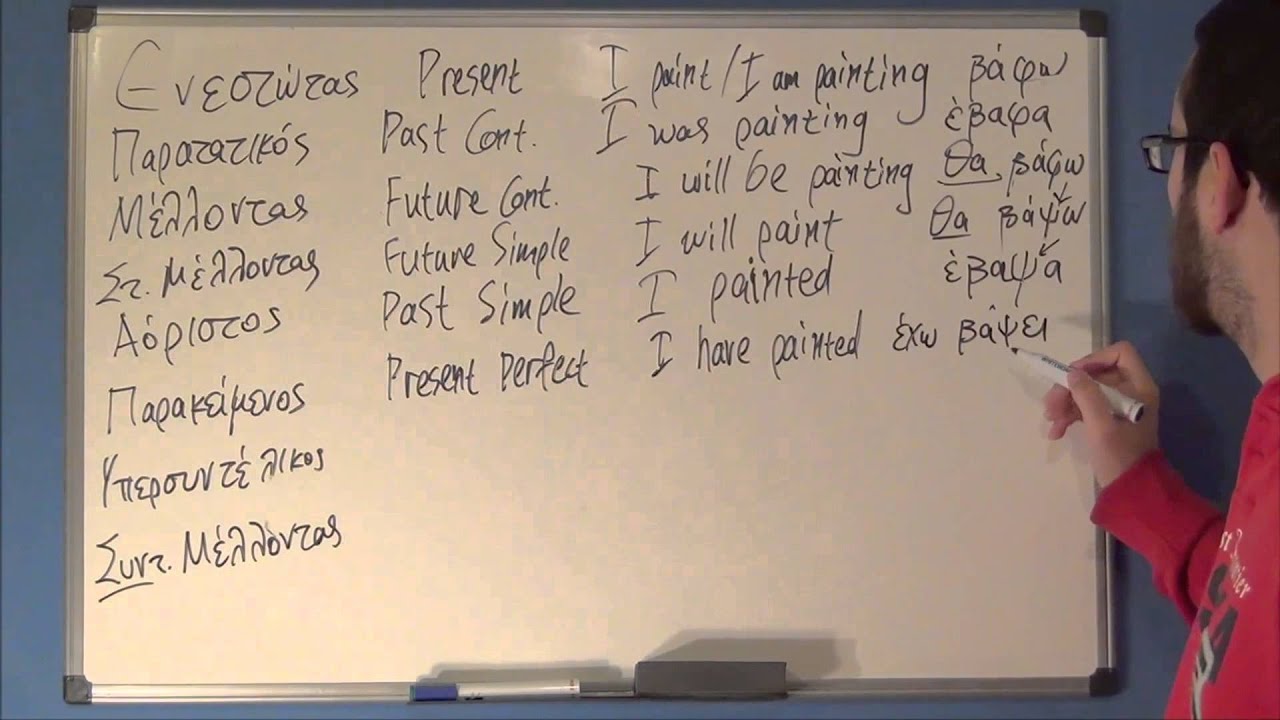 Ενεστώτας Present I paint / I am painting βάφω
Παρατατικός Past Cont. I was painting έβαφα
Μέλλοντας Future Cont. I will be painting θα βάφω
Στ. Μέλλοντας Future Simple I will paint θα βάψω
Αόριστος Past Simple I painted έβαψα
Παρακείμενος Present Perfect I have painted έχω βάψει
Υπερσυντέλικος
Συντ. Μέλλοντας